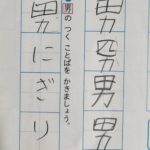 男男男男
男のつくことばをかきましょう。
男にぎり